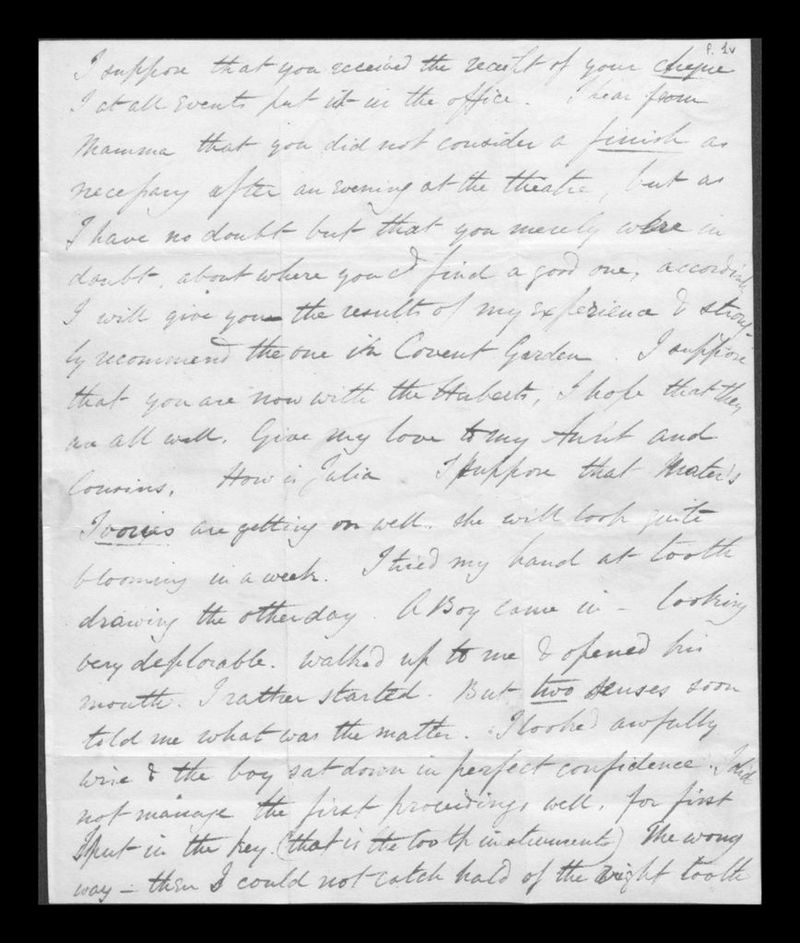 P. 1v
I suppose that you received the receipt of your cheque
I at all events put it in the office. I hear from
Mamma that you did not consider a finish as
necessary after an evening at the theatre, but as
I have no doubt but that you merely were in
doubt, about where you cd find a good one, accordingly
I will give you the results of my experience & strong-
ly recommend the one in Covent Garden. I suppose
that you are now with the Huberts, I hope that they
are all well. Give my love to my Aunt and
Cousins. How is Julia I suppose that Mater's
Ivories are getting on well. she will look quite
blooming in a week. I tried my hand at tooth
drawing the other day. A Boy came in - looking
very deplorable. walked up to me & opened his
mouth. I rather started. But two senses soon
told me what was the matter. I looked awfully
wise & the boy sat down in perfect confidence. I did
not manage the first proceedings well. for first
I put in the key (that is the tooth instruments) the wrong
way - then I could not catch hold of the right tooth